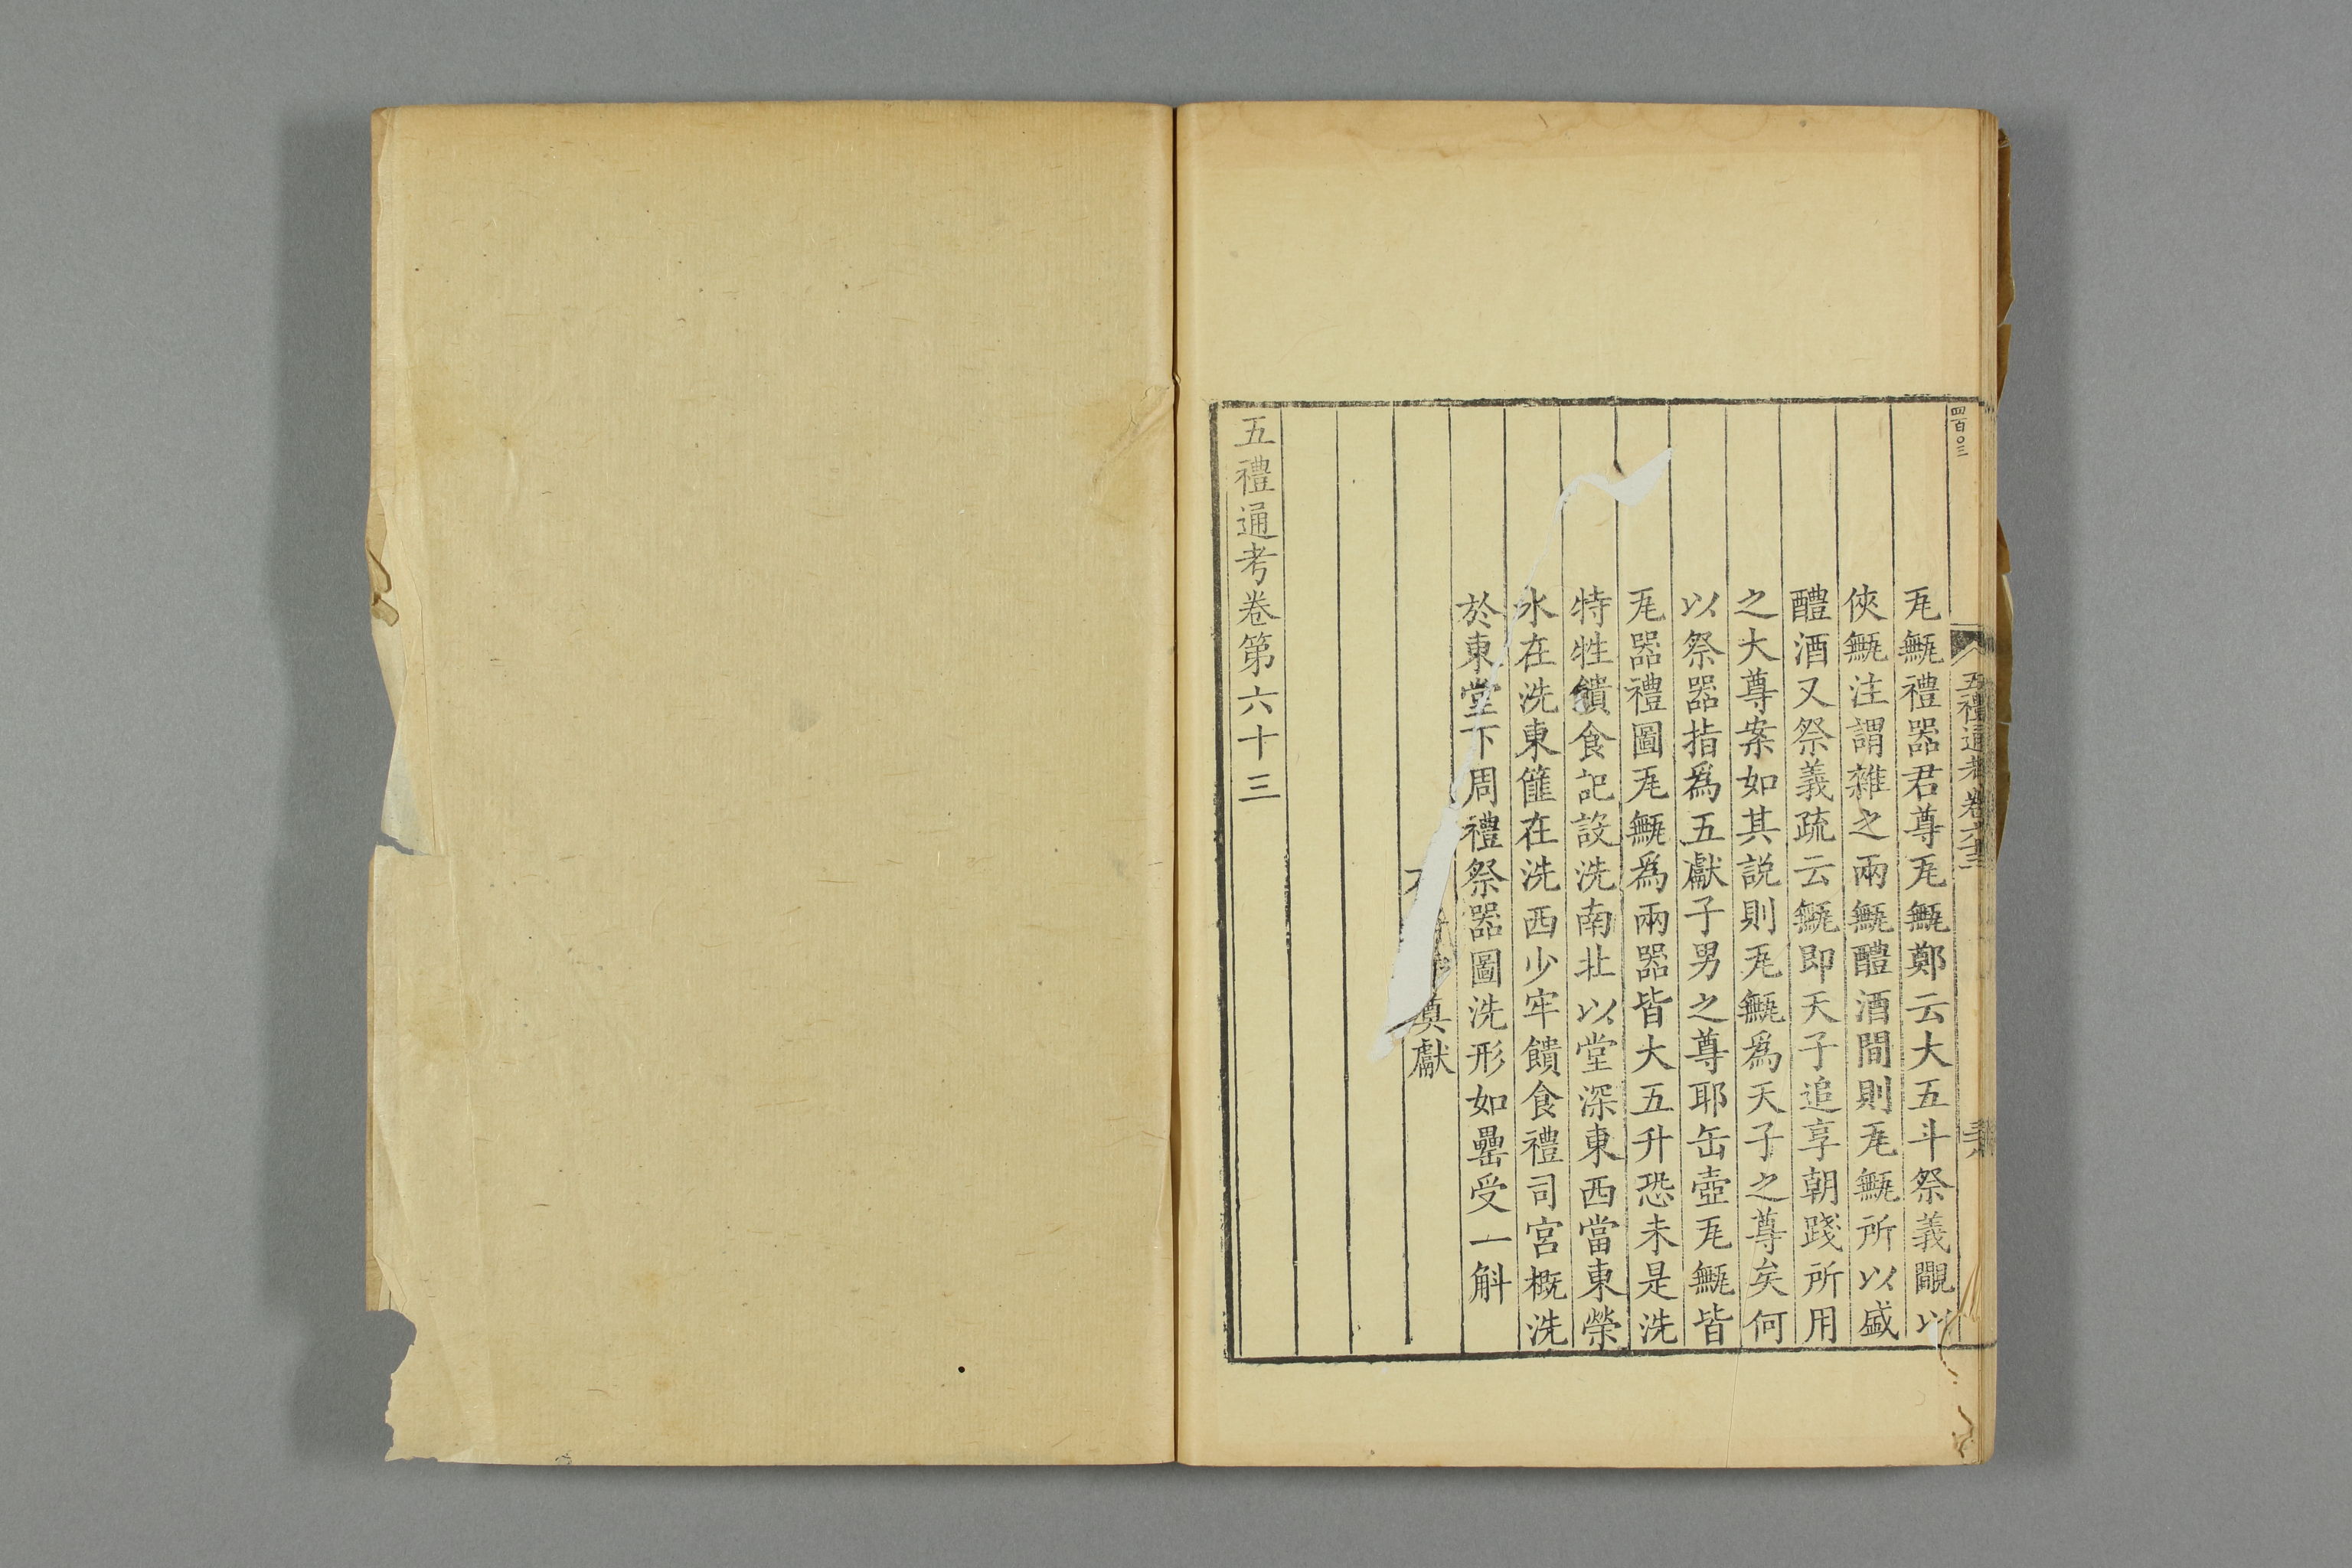 四百〇三
五禮通考卷六十三
瓦甒禮器君尊瓦甒鄭云大五斗祭義覵以
俠甒注謂雜之兩甒醴酒間則瓦甒所以盛
醴酒又祭義疏云甒即天子追享朝踐所用
之大尊案如其說則瓦甒爲天子之尊矣何
以祭器指爲五獻子男之尊耶缶壺瓦甒皆
瓦器禮圖瓦甒爲兩器皆大五升恐未是洗
特牲饋食記設洗南北以堂深東西當東榮
水在洗東篚在洗西少牢饋食禮司宮概洗
於東堂下周禮祭器圖洗形如罍受一斛
奠獻
五禮通考卷第六十三